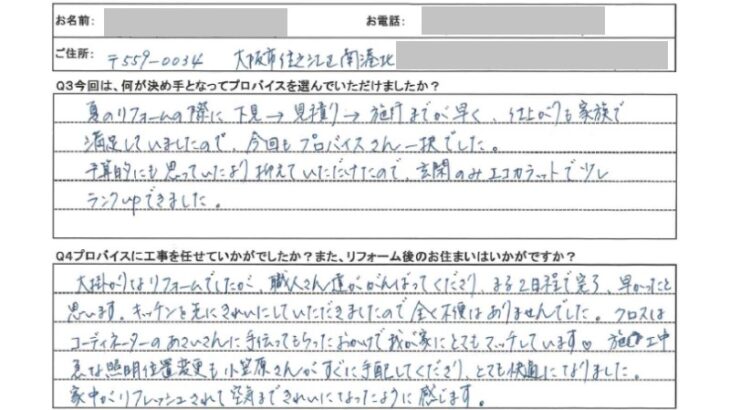 お名前： お電話：
ご住所： 〒559-0034 大阪市住之江区南港北
Q3今回は、何が決め手となってプロバイスを選んでいただけましたか？
夏のリフォームの際に下見→見積り→施行までが早く、仕上がりも家族で
満足していましたので、今回もプロバイスさん一択でした。
予算的にも思っていたより抑えていただけたので、玄関のみエコカラットで少し
ランクupできました。
Q4プロバイスに工事を任せていかがでしたか？また、リフォーム後のお住まいはいかがですか？
大掛かりなリフォームでしたが、職人さん達ががんばってくださり、まる2日程で完了、早かったと
思います。キッチンを先にきれいにしていただきましたので全く不便はありませんでした。クロスは
コーディネーターのあさいさんに手伝ってもらったおかげで我が家にとてもマッチしています♡ 施工中
急な照明位置変更も小笠原さんがすぐに手配してくださり、とても快適になりました。
家中がリフレッシュされて空気まできれいになったように感じます。